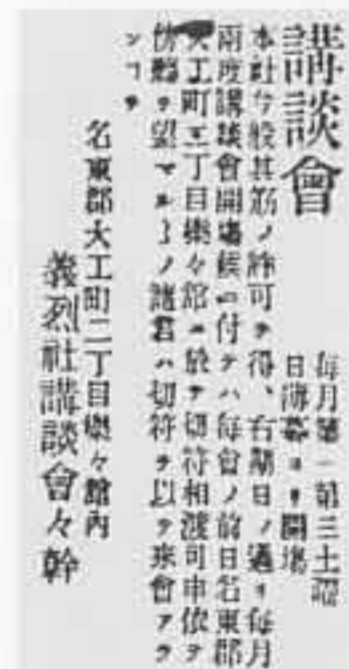 講談會
毎月第一第三土曜
日薄暮ヨリ開場
本社今般其筋ノ許可ヲ得、右期日ノ通リ毎月
兩度講談會開場候ニ付テハ毎會ノ前日名東郡
大工町二丁目樂々館ニ於テ切符相渡可申依テ
傍聽ヲ望マルヽノ諸君ハ切符ヲ以テ來會アラ
ンヿヲ
名東郡大工町二丁目樂々館内
義烈社講談會々幹